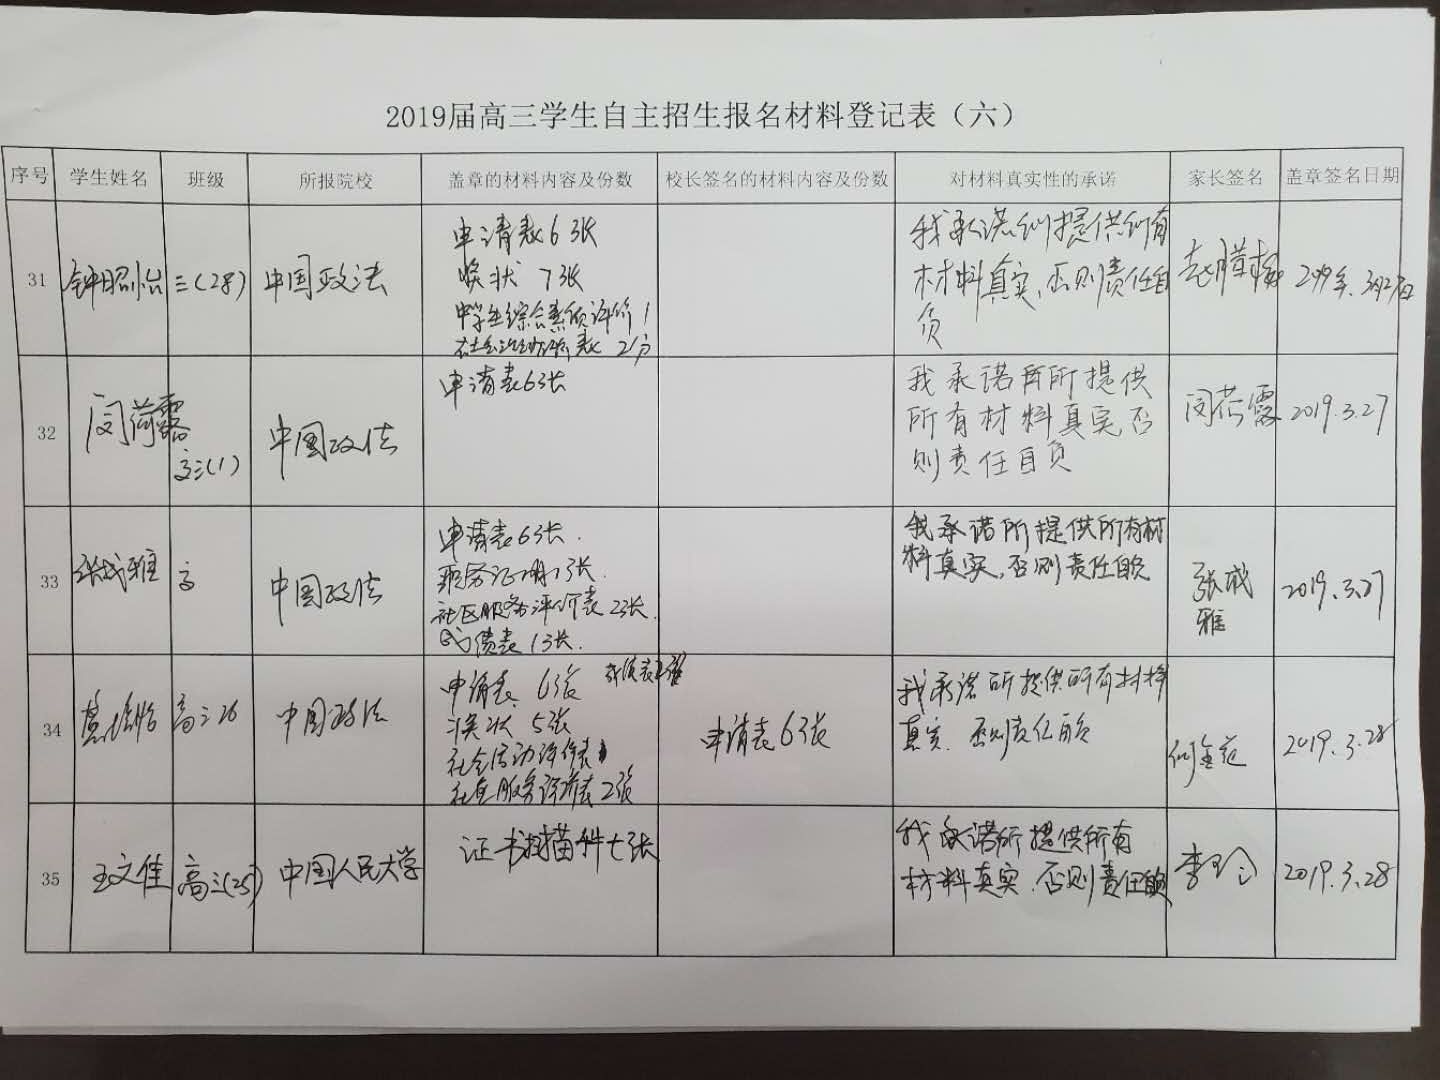 2019届高三学生自主招生报名材料登记表（六）
序号 学生姓名 班级 所报院校 盖章的材料内容及份数 校长签名的材料内容及份数 对材料真实性的承诺 家长签名 盖章签名日期
31 钟昭怡 三(28) 中国政法
申请表6张
奖状 7张
中学生综合素质评价1
表 2份
我承诺所提供所有
材料真实,否则责任自
负
2019年3月27日
32 闵荷露 高三(1) 中国政法
申请表6张
我承诺所提供
所有材料真实否
则责任自负
闵荷露 2019.3.27
33 张成雅 高 中国政法
申请表6张.
证明1张.
社区服务评价表2张.
成绩表1张.
我承诺所提供所有材
料真实,否则责任自负
张成
雅
2019.3.27
34 高三26 中国政法
申请表 6张 成绩表
奖状 5张
社会活动评价表
社区服务评价表2张
申请表6张
我承诺所提供所有材料
真实,否则责任自负
2019.3.28
35 王文佳 高三(25) 中国人民大学
证书扫描件七张
我承诺所提供所有
材料真实,否则责任自负
2019.3.28